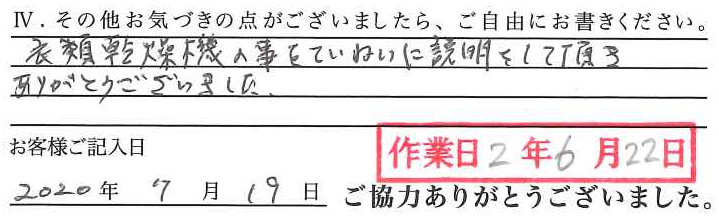 Ⅳ．その他お気づきの点がございましたら、ご自由にお書きください。
衣類乾燥機の事をていねいに説明をして頂き
ありがとうございました.
お客様ご記入日
作業日2年6月22日
2020年 7月 19日 ご協力ありがとうございました。